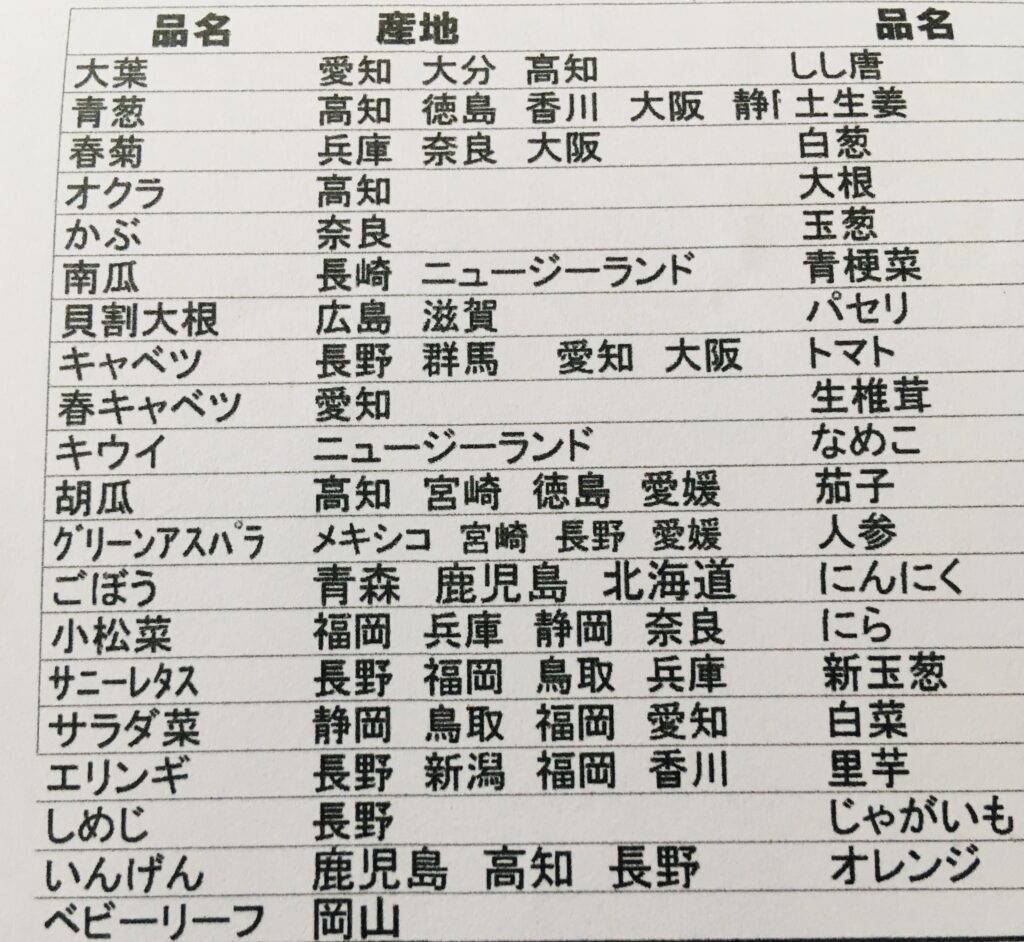 品名 産地 品名
大葉 愛知 大分 高知 しし唐
青葱 高知 徳島 香川 大阪 土生姜
春菊 兵庫 奈良 大阪 白葱
オクラ 高知 大根
かぶ 奈良 玉葱
南瓜 長崎 ニュージーランド 青梗菜
貝割大根 広島 滋賀 パセリ
キャベツ 長野 群馬 愛知 大阪 トマト
春キャベツ 愛知 生椎茸
キウイ ニュージーランド なめこ
胡瓜 高知 宮崎 徳島 愛媛 茄子
グリーンアスパラ メキシコ 宮崎 長野 愛媛 人参
ごぼう 青森 鹿児島 北海道 にんにく
小松菜 福岡 兵庫 静岡 奈良 にら
サニーレタス 長野 福岡 鳥取 兵庫 新玉葱
サラダ菜 静岡 鳥取 福岡 愛知 白菜
エリンギ 長野 新潟 福岡 香川 里芋
しめじ 長野 じゃがいも
いんげん 鹿児島 高知 長野 オレンジ
ベビーリーフ 岡山